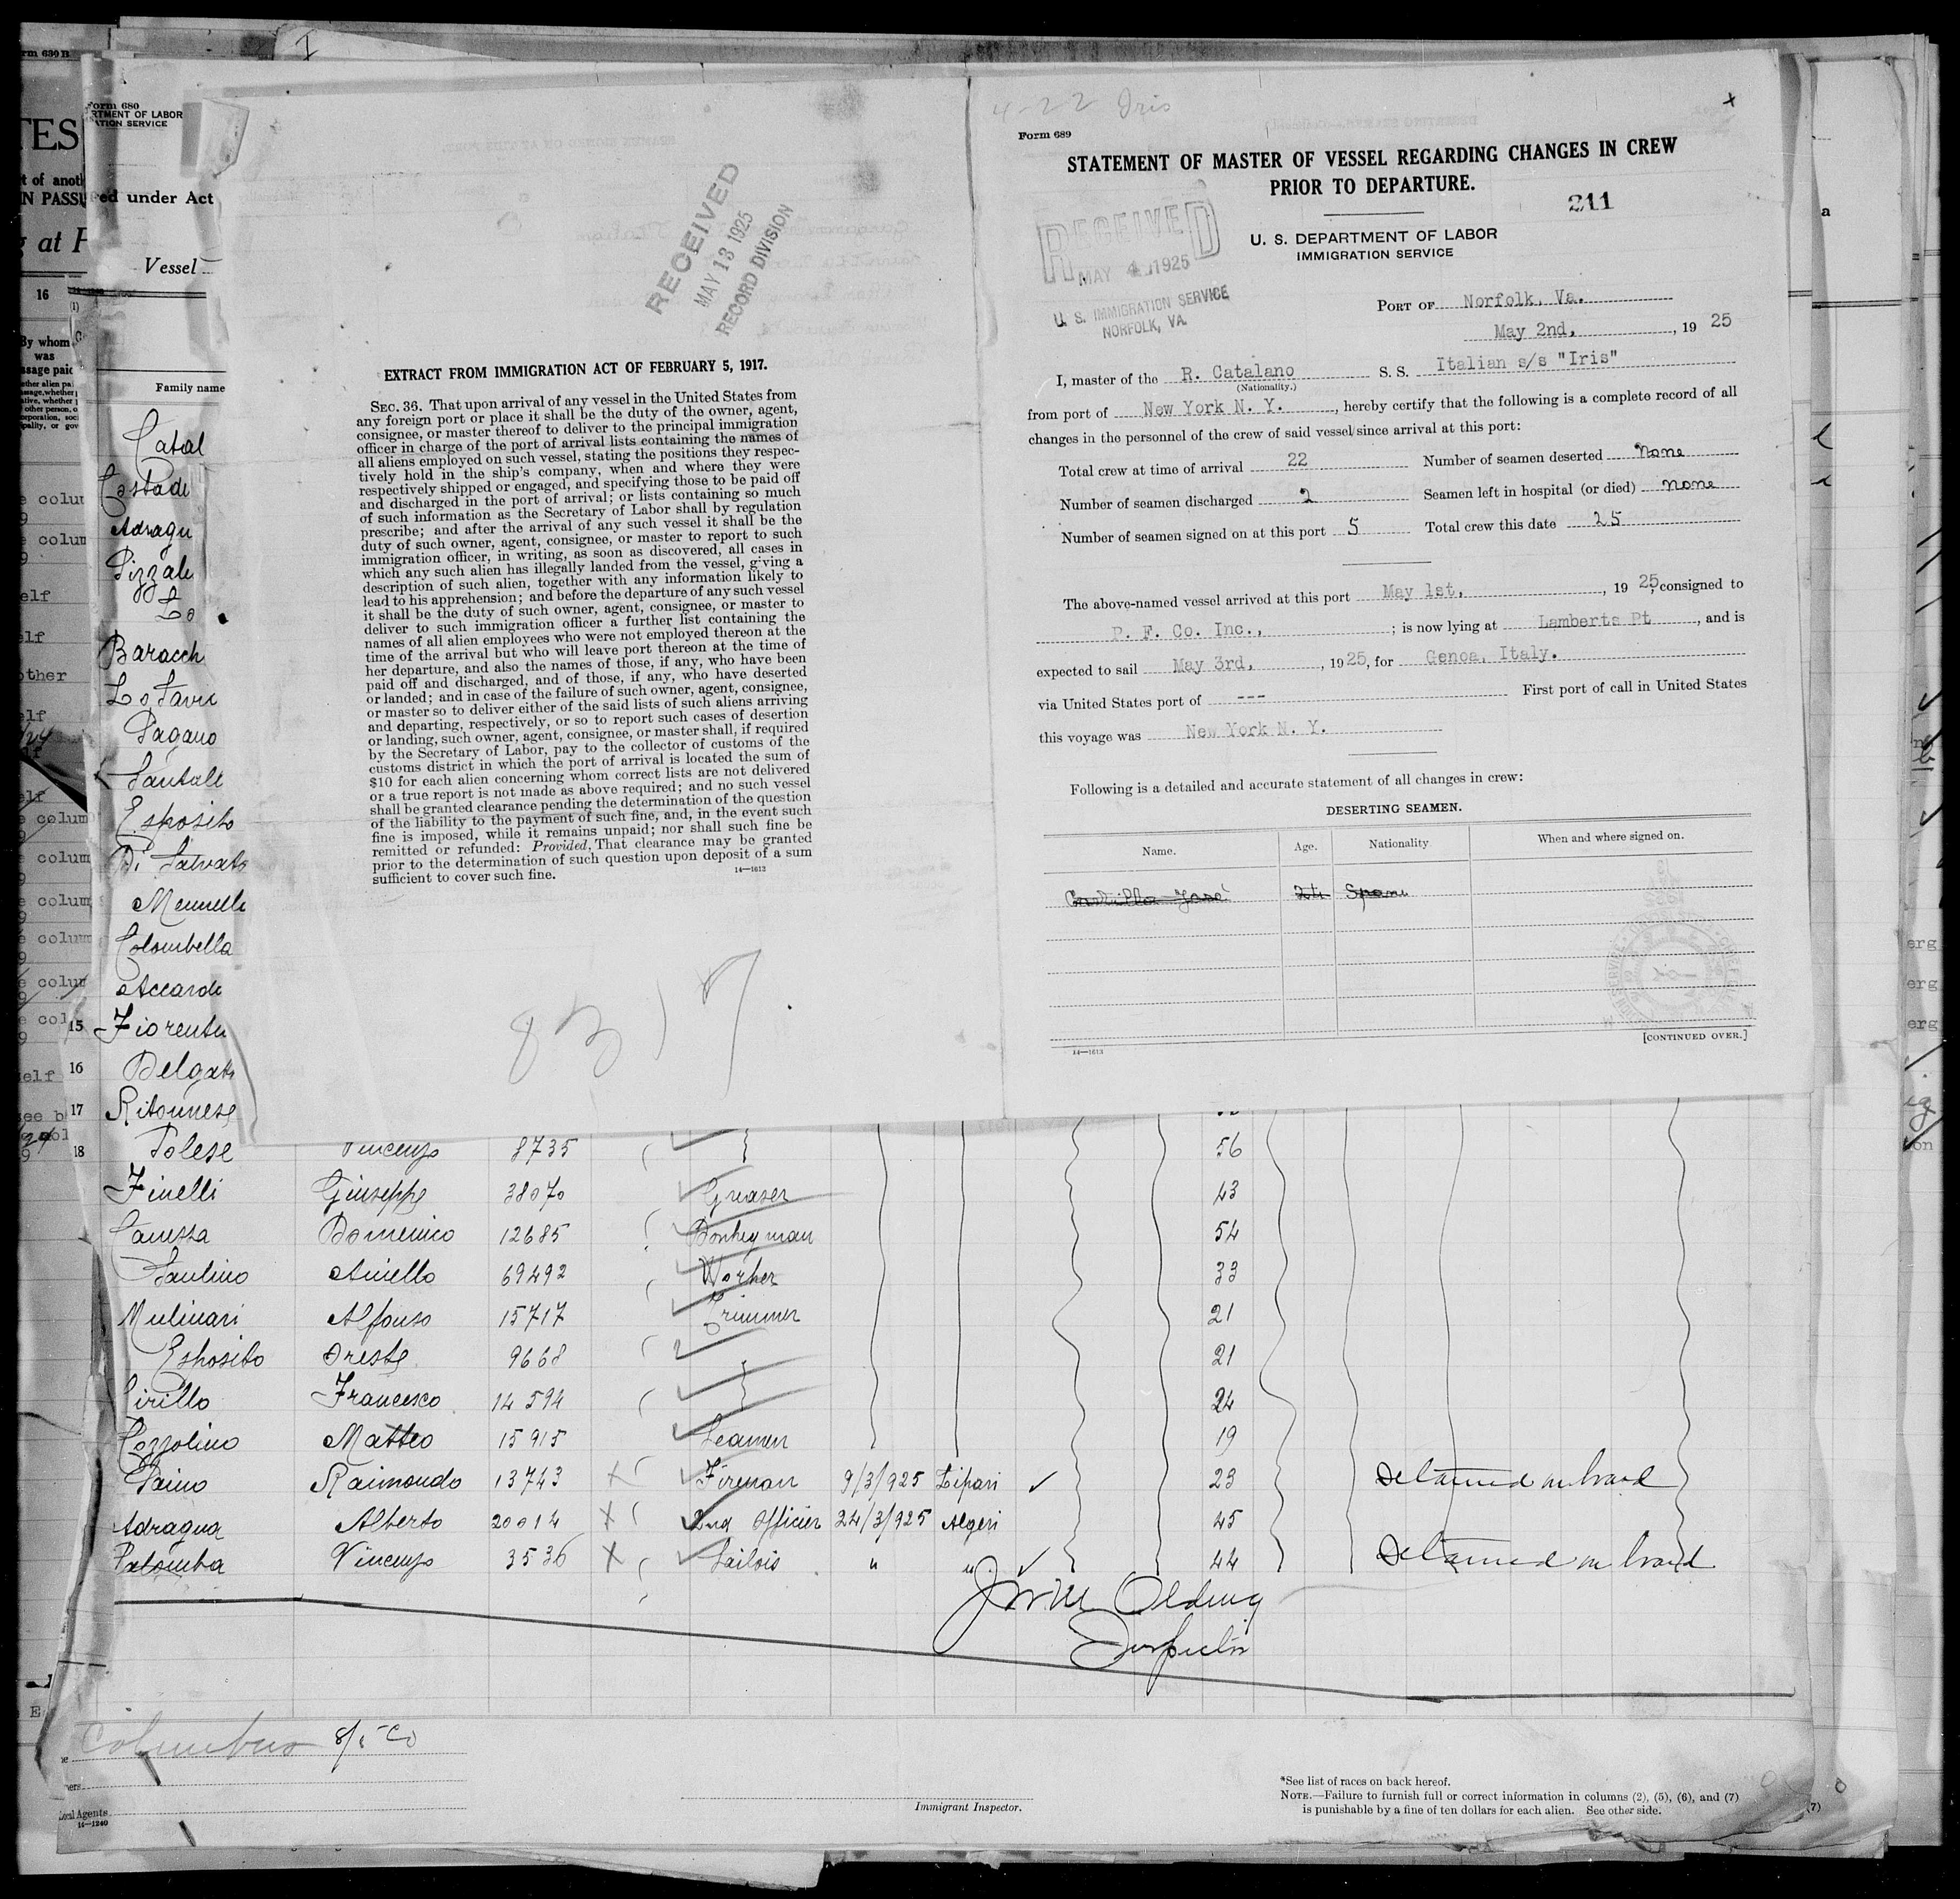 I
Form 630 B
Form 680
TES
RTMENT OF LABOR
ATION SERVICE
t of anoth
N PASSU
ed under Act
g at P
Vessel
16
(1)
By whom
was
ssage paid
Family name
Catal
Costade
Adragu
Pizzale
Lo
Baracch
Lo Favre
Pagano
Santall
Esposito
Di Salvato
Mennella
Colombella
Accarde
15 Fiorentn
16 Delgat
17 Ritonnese
RECEIVED
MAY 13 1925
RECORD DIVISION
EXTRACT FROM IMMIGRATION ACT OF FEBRUARY 5, 1917.
SEC. 36. That upon arrival of any vessel in the United States from
any foreign port or place it shall be the duty of the owner, agent,
consignee, or master thereof to deliver to the principal immigration
officer in charge of the port of arrival lists containing the names of
all aliens employed on such vessel, stating the positions they respec-
tively hold in the ship's company, when and where they were
respectively shipped or engaged, and specifying those to be paid off
and discharged in the port of arrival; or lists containing so much
of such information as the Secretary of Labor shall by regulation
prescribe; and after the arrival of any such vessel it shall be the
duty of such owner, agent, consignee, or master to report to such
immigration officer, in writing, as soon as discovered, all cases in
which any such alien has illegally landed from the vessel, giving a
description of such alien, together with any information likely to
lead to his apprehension; and before the departure of any such vessel
it shall be the duty of such owner, agent, consignee, or master to
deliver to such immigration officer a further list containing the
names of all alien employees who were not employed thereon at the
time of the arrival but who will leave port thereon at the time of
her departure, and also the names of those, if any, who have been
paid off and discharged, and of those, if any, who have deserted
or landed; and in case of the failure of such owner, agent, consignee,
or master so to deliver either of the said lists of such aliens arriving
and departing, respectively, or so to report such cases of desertion
or landing, such owner, agent, consignee, or master shall, if required
by the Secretary of Labor, pay to the collector of customs of the
customs district in which the port of arrival is located the sum of
$10 for each alien concerning whom correct lists are not delivered
or a true report is not made as above required; and no such vessel
shall be granted clearance pending the determination of the question
of the liability to the payment of such fine, and, in the event such
fine is imposed, while it remains unpaid; nor shall such fine be
remitted or refunded: Provided, That clearance may be granted
prior to the determination of such question upon deposit of a sum
sufficient to cover such fine.
14—1613
8317
4-22 Iris
x
Form 689
STATEMENT OF MASTER OF VESSEL REGARDING CHANGES IN CREW
PRIOR TO DEPARTURE.
211
U. S. DEPARTMENT OF LABOR
IMMIGRATION SERVICE
RECEIVED
MAY 4 1925
U. S. IMMIGRATION SERVICE
NORFOLK, VA.
PORT OF Norfolk, Va.
May 2nd, , 19 25
I, master of the R. Catalano S. S. Italian s/s "Iris"
(Nationality.)
from port of New York N. Y. , hereby certify that the following is a complete record of all
changes in the personnel of the crew of said vessel since arrival at this port:
Total crew at time of arrival 22 Number of seamen deserted None
Number of seamen discharged 2 Seamen left in hospital (or died) none
Number of seamen signed on at this port 5 Total crew this date 25
The above-named vessel arrived at this port May 1st, , 19 25, consigned to
P. F. Co. Inc., ; is now lying at Lamberts Pt , and is
expected to sail May 3rd, , 1925, for Genoa, Italy.
via United States port of --- First port of call in United States
this voyage was New York N. Y.
Following is a detailed and accurate statement of all changes in crew:
DESERTING SEAMEN.
Name. Age. Nationality When and where signed on.
24 Spani
[CONTINUED OVER.]
14—1613
18 Polese Vincenzo 8735 56
Finelli Giuseppe 38070 Greaser 43
Canessa Domenico 12685 Donkeyman 54
Paulino Aniello 69492 Worker 33
Mulinari Alfonso 15717 Trimmer 21
Esposito Oreste 9668 21
Cirillo Francesco 14594 24
Cozzolino Matteo 15915 Seamen 19
Paino Raimondo 13743 x Fireman 9/3/925 Lipari 23 Detained on board
Adragna Alberto 20014 x 2nd Officier 24/3/925 Algeri 45
Palomba Vincenzo 3536 x Sailois " " 44 Detained on board
Olding
Inspector
Columbus
Local Agents
14—1240
Immigrant Inspector.
*See list of races on back hereof.
NOTE.—Failure to furnish full or correct information in columns (2), (5), (6), and (7)
is punishable by a fine of ten dollars for each alien. See other side.
(7)